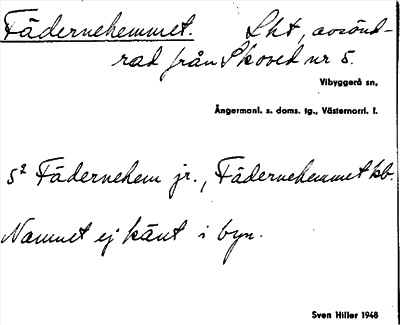 Fädernehemmet. Lht, avsönd-
rad från Skoved nr 5.
Vibyggerå sn,
Ångermanl. s. doms. tg., Västernorrl. l.
s² Fädernehem jr., Fädernehemmet kb.
Namnet ej känt i byn.
Sven Hiller 1948